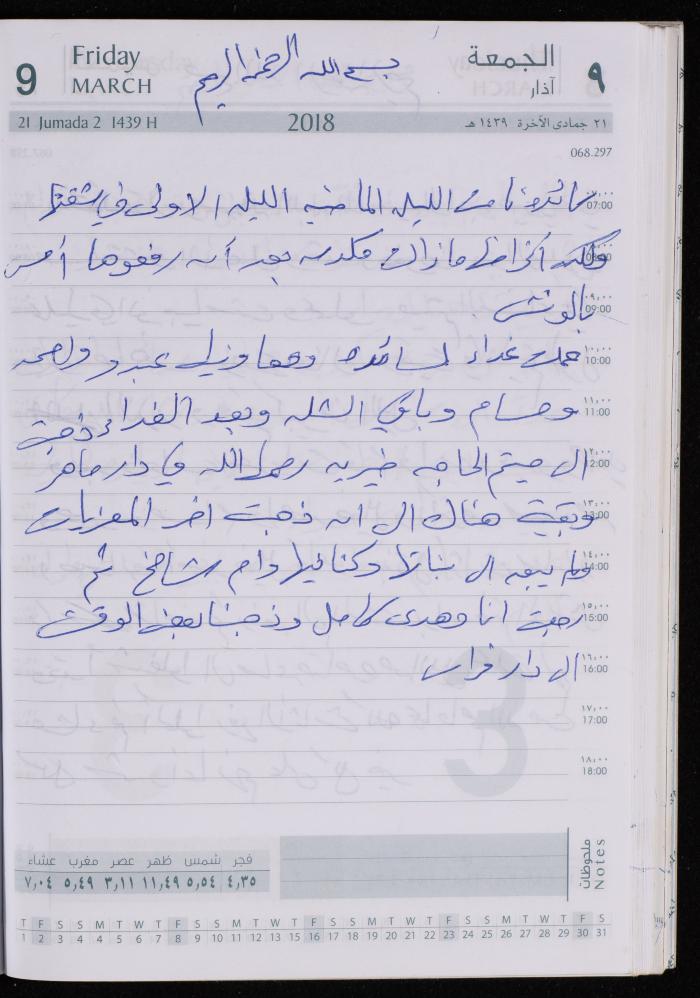 9
Friday
MARCH
بسم الله الرحمن الرحيم
الجمعة
آذار
٩
21 Jumada 2 1439 H
2018
٢١ جمادى الآخرة ١٤٣٩ هـ
068.297
07:00
الليله الماضيه الليله الاولى في شقتها
ما زالت مكدسه بعد أن رفعوها أمس
٠٩:٠٠
09:00
بالونش
١٠:٠٠
10:00
عملت غداء لسائده وهما ونزل عبد و
١١:٠٠
11:00
وحسام وباقي الشله وبعد الغداء ذهبت
12:00
الى ميتم الحاجه خيريه رحمها الله في دار ماهر
١٣:٠٠
13:00
وبقيت هناك الى ان ذهبت اخر المعزيات
١٤:٠٠
14:00
ولم يبقه الا بناتها وكنائنها وام شامخ ثم
١٥:٠٠
15:00
رجعت انا وهدى كامل وذهبنا بعض الوقت
١٦:٠٠
16:00
الى دار فراس
١٧:٠٠
17:00
١٨:٠٠
18:00
ملحوظات
Notes
فجر شمس ظهر عصر مغرب عشاء
٤,٣٥ ٥,٥٤ ١١,٤٩ ٣,١١ ٥,٤٩ ٧,٠٤
T F S S M T W T F S S M T W T F S S M T W T F S S M T W T F S
1 2 3 4 5 6 7 8 9 10 11 12 13 14 15 16 17 18 19 20 21 22 23 24 25 26 27 28 29 30 31